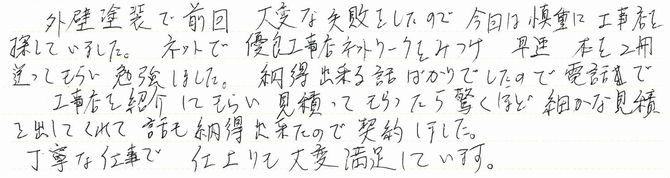 外壁塗装で前回 大変な失敗をしたので今回は慎重に工事店を
探していました。ネットで優良工事店ネットワークをみつけ 早速 本を2冊
送ってもらい勉強しました。納得出来る話ばかりでしたので電話で
工事店を紹介してもらい見積ってもらったら驚くほど細かな見積
を出してくれて話も納得出来たので契約しました。
丁寧な仕事で 仕上りも大変満足しています。